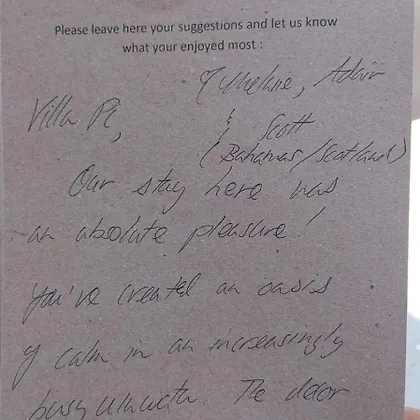 Please leave here your suggestions and let us know
what your enjoyed most :
Adair
Villa Pi,
& Scott
(Bahamas/Scotland)
Our stay here was
an absolute pleasure!
You've created an oasis
of calm in an increasingly
busy Uluwatu. The decor